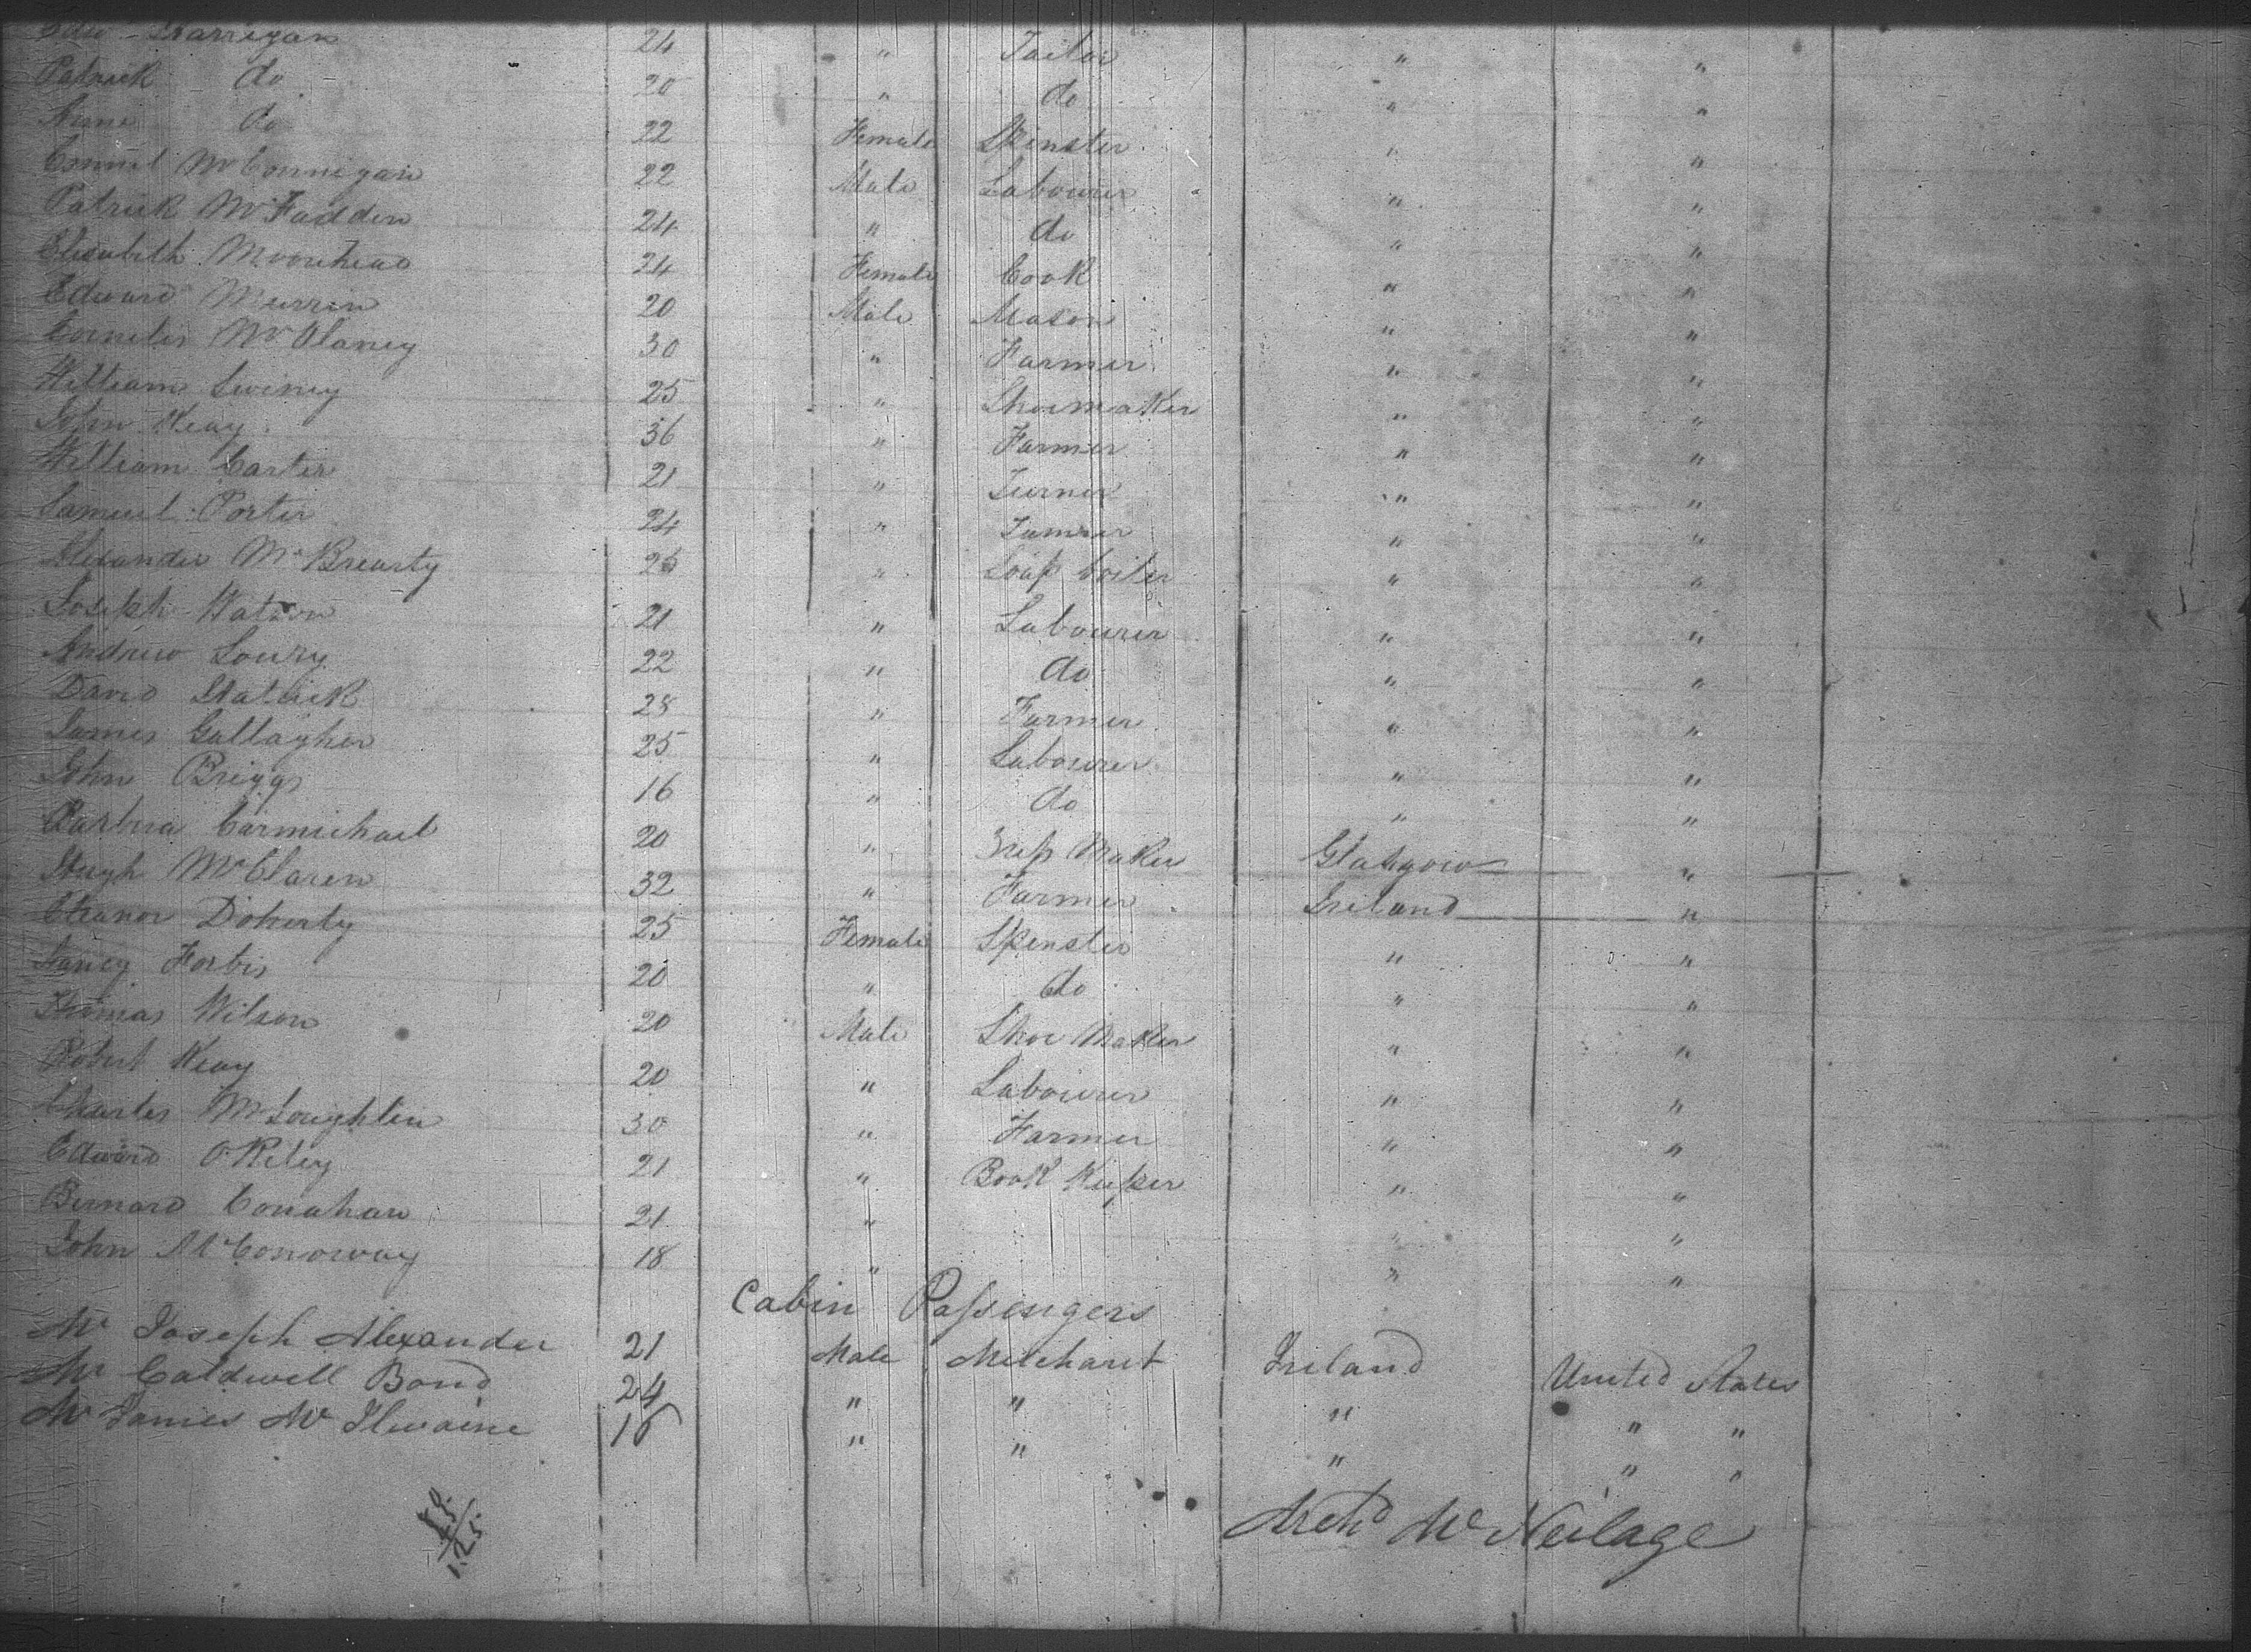 Edwd Harrigan 24 " Tailor " "
Patrick do 20 " do " "
Anne do 22 Female Spinster " "
McConnigan 22 Male Labourer " "
Patrick McFadden 24 " do " "
Elizabeth Moorehead 24 Female Cook " "
Edward Murrin 20 Male Mason " "
Cornelis McOlaney 30 " Farmer " "
William Swiney 25 " Shoemaker " "
John Keay 36 " Farmer " "
William Carter 21 " Turner " "
Samuel Porter 24 " " "
Alexander McBrearty 25 " Soap boiler " "
Joseph Watson 21 " Labourer " "
Andrew Lowry 22 " do " "
David 28 " Farmer " "
James Gallagher 25 " Labourer " "
John Briggs 16 " do " "
Carmichael 20 " Maker Glasgow "
Hugh McClaren 32 " Farmer Ireland "
Eleanor Doherty 25 Female Spinster " "
Nancy Forbis 20 " do " "
Thomas Wilson 20 Male Shoe Maker " "
Robert Keay 20 " Labourer " "
Charles McLoughlin 30 " Farmer " "
Edward O'Riley 21 " Book Keeper " "
Bernard Conahan 21 " " "
John McConoway 18 " " "
Cabin Passengers
Mr Joseph Alexander 21 Male Merchant Ireland United States
Mr Caldwell Bond 24 " " " " "
Mr James McIlwaine 16 " " " " "
Archd McNeilage